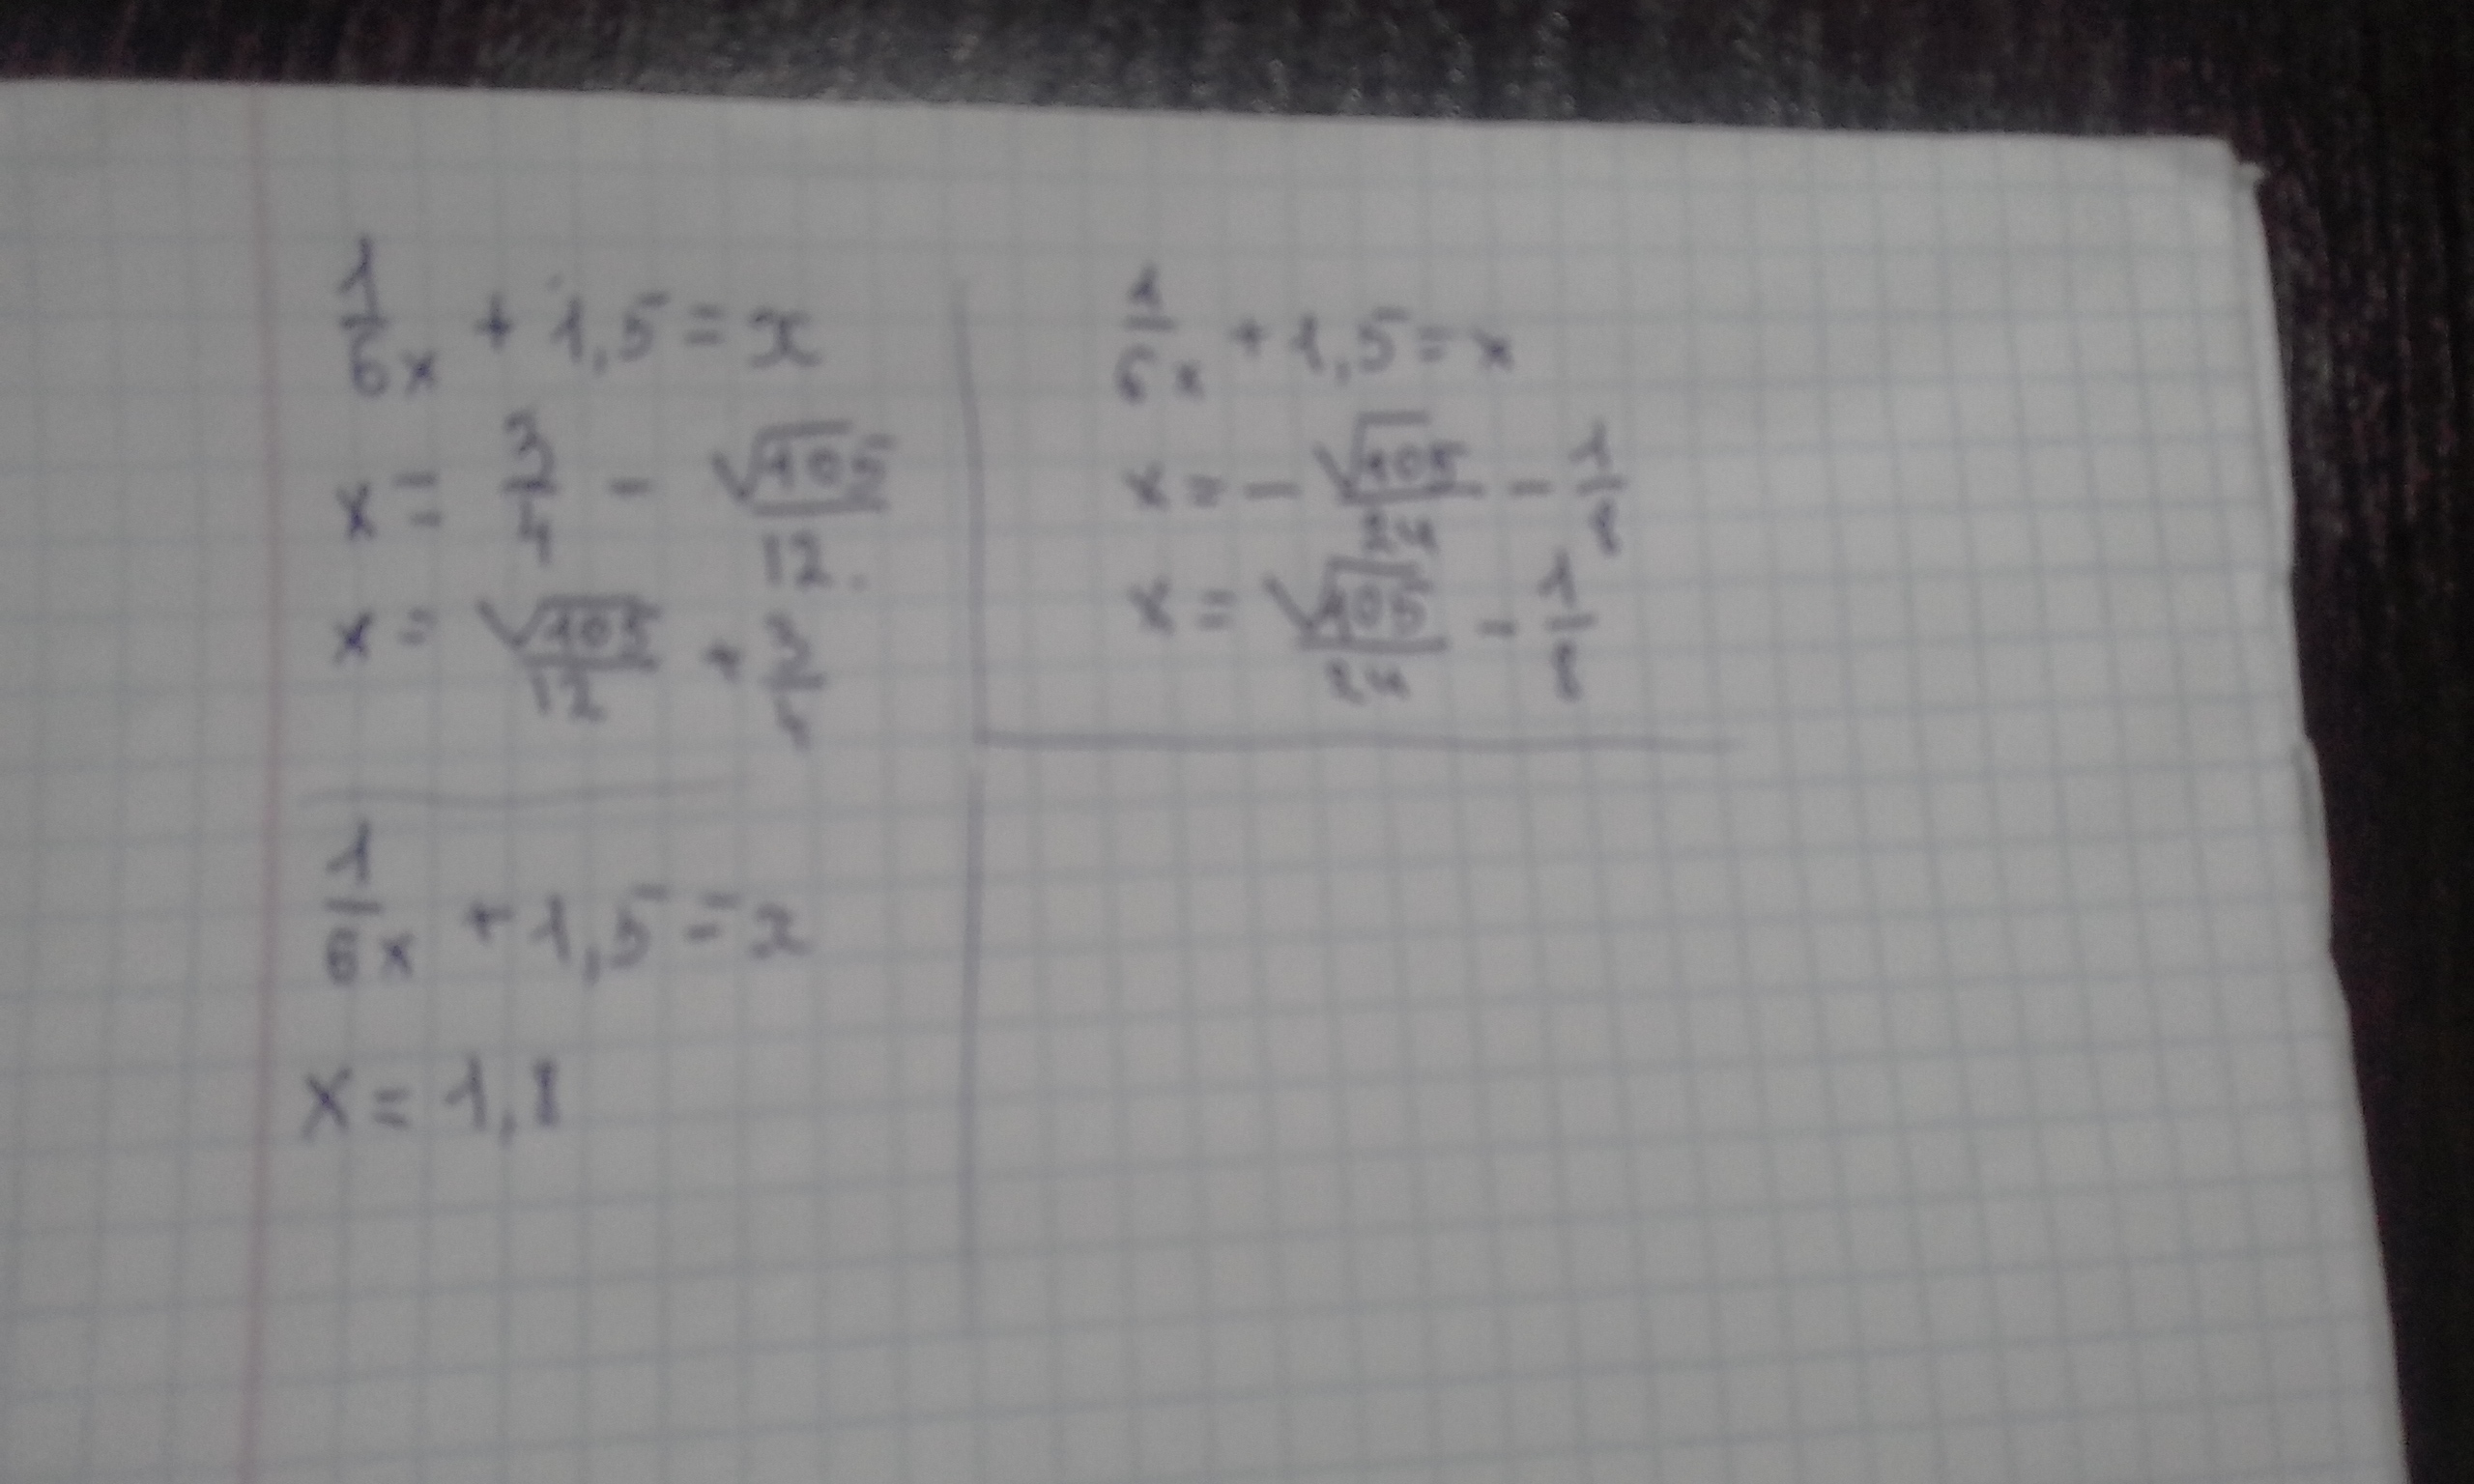 1/6x + 1,5 = x
x = 3/4 - √105/12.
x = √105/12 + 3/4
1/6x + 1,5 = x
x = 1,8
1/6x + 1,5 = x
x = - √105/24 - 1/8
x = √105/24 - 1/8